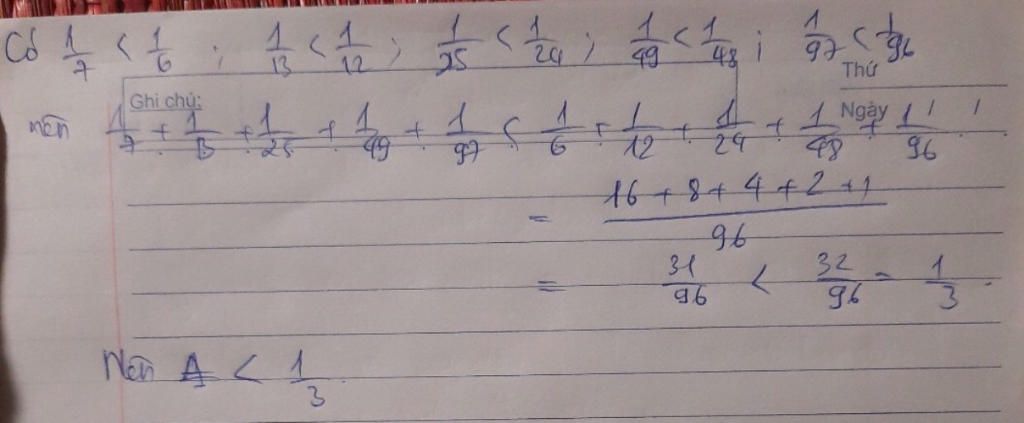 Có 1/7 < 1/6 ; 1/13 < 1/12 ; 1/25 < 1/24 ; 1/49 < 1/48 ; 1/97 < 1/96
Thứ
Ghi chú:
Ngày
nên 1/7 + 1/13 + 1/25 + 1/49 + 1/97 < 1/6 + 1/12 + 1/24 + 1/48 + 1/96
= (16 + 8 + 4 + 2 + 1)/96
= 31/96 < 32/96 = 1/3.
Nên A < 1/3.